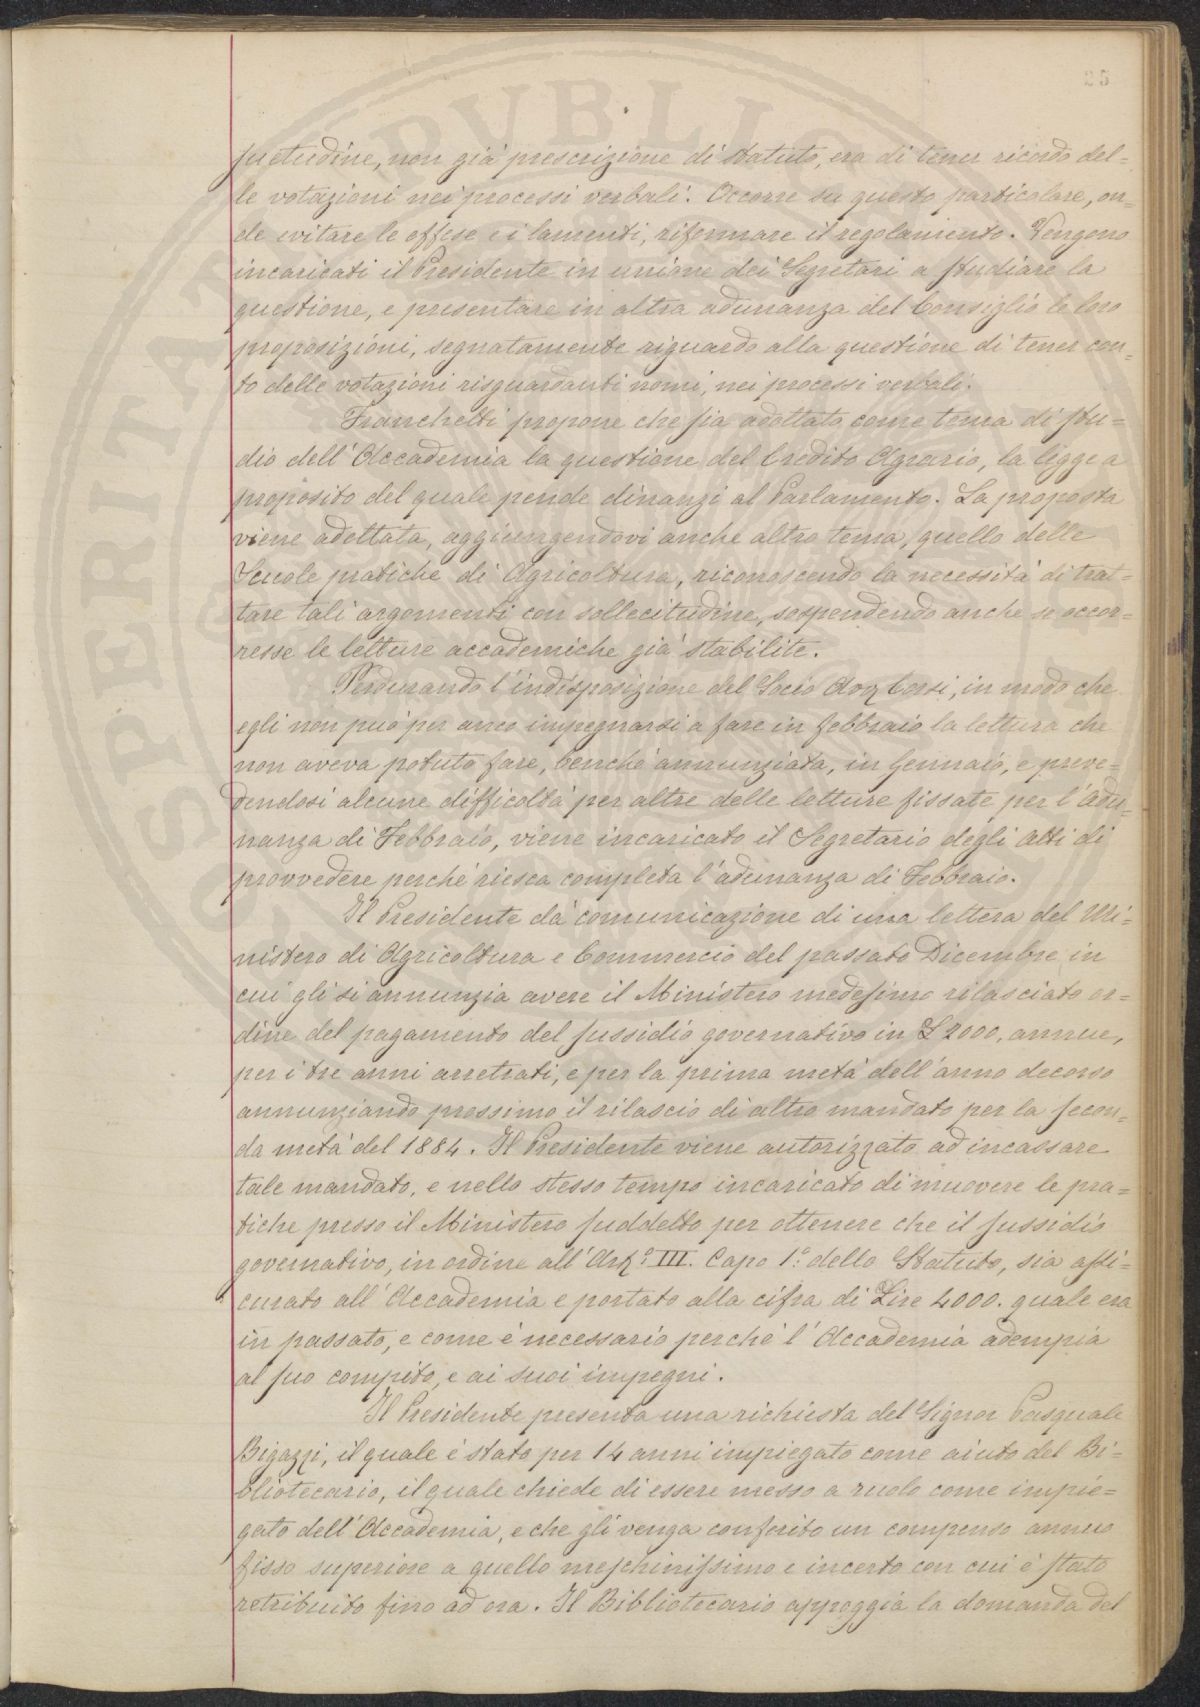 25
suetudine, non già prescrizione di statuto, era di tener ricordo del=
le votazioni nei processi verbali. Occorre su questo particolare, on=
de evitare le offese e i lamenti, riformare il regolamento. Vengono
incaricati il Presidente in unione dei Segretari a studiare la
questione, e presentare in altra adunanza del Consiglio le loro
proposizioni, segnatamente riguardo alla questione di tener con=
to delle votazioni risguardanti nomi, nei processi verbali.
Franchetti propone che sia adottato come tema di stu=
dio dell'Accademia la questione del Credito Agrario, la legge a
proposito del quale pende dinanzi al Parlamento. La proposta
viene adottata, aggiungendovi anche altro tema, quello delle
Scuole pratiche di Agricoltura, riconoscendo la necessità di trat=
tare tali argomenti con sollecitudine, sospendendo anche se occor=
resse le letture accademiche già stabilite.
Perdurando l'indisposizione del Socio Corsi, in modo che
egli non può per anco impegnarsi a fare in febbraio la lettura che
non aveva potuto fare, benchè annunziata, in Gennaio, e preve=
dendosi alcune difficoltà per altre delle letture fissate per l'Adu=
nanza di Febbraio, viene incaricato il Segretario degli Atti di
provvedere perchè riesca completa l'adunanza di Febbraio.
Il Presidente dà comunicazione di una lettera del Mi=
nistero di Agricoltura e Commercio del passato Dicembre in
cui gli si annunzia avere il Ministero medesimo rilasciato or=
dine del pagamento del sussidio governativo in £ 2000, annue,
per i tre anni arretrati, e per la prima metà dell'anno decorso
annunziando prossimo il rilascio di altro mandato per la secon=
da metà del 1884. Il Presidente viene autorizzato ad incassare
tale mandato, e nello stesso tempo incaricato di muovere le pra=
tiche presso il Ministero suddetto per ottenere che il sussidio
governativo, in ordine all'Arto III. Capo 1.° dello Statuto, sia assi=
curato all'Accademia e portato alla cifra di Lire 4000. quale era
in passato, e come è necessario perchè l'Accademia adempia
al suo compito, e ai suoi impegni.
Il Presidente presenta una richiesta del Signor Pasquale
Bigazzi, il quale è stato per 14 anni impiegato come aiuto del Bi=
bliotecario, il quale chiede di essere messo a ruolo come impie=
gato dell'Accademia, e che gli venga conferito un compenso annuo
fisso superiore a quello meschinissimo e incerto con cui è stato
retribuito fino ad ora. Il Bibliotecario appoggia la domanda del